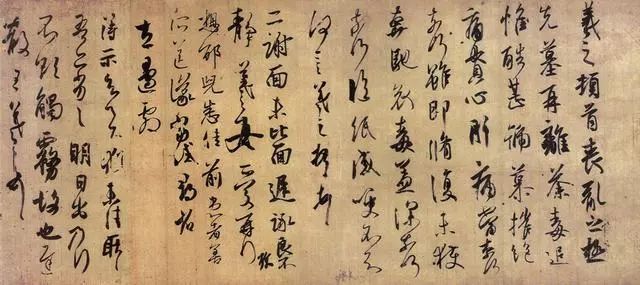 羲之頓首喪亂之極
先墓再離荼毒追
惟酷甚號慕摧絕
痛貫心肝痛當奈何
奈何雖即脩復未獲
奔馳哀毒益深奈何
奈何臨紙感哽不知
何言羲之頓首頓首
二謝面未比面遲詠
靜羲之女愛再拜
想邰兒悉佳前患者善
左邊劇
得示知足下猶未佳耿耿
吾亦劣劣明日出乃行
不欲觸霧故也遲
散王羲之頓首